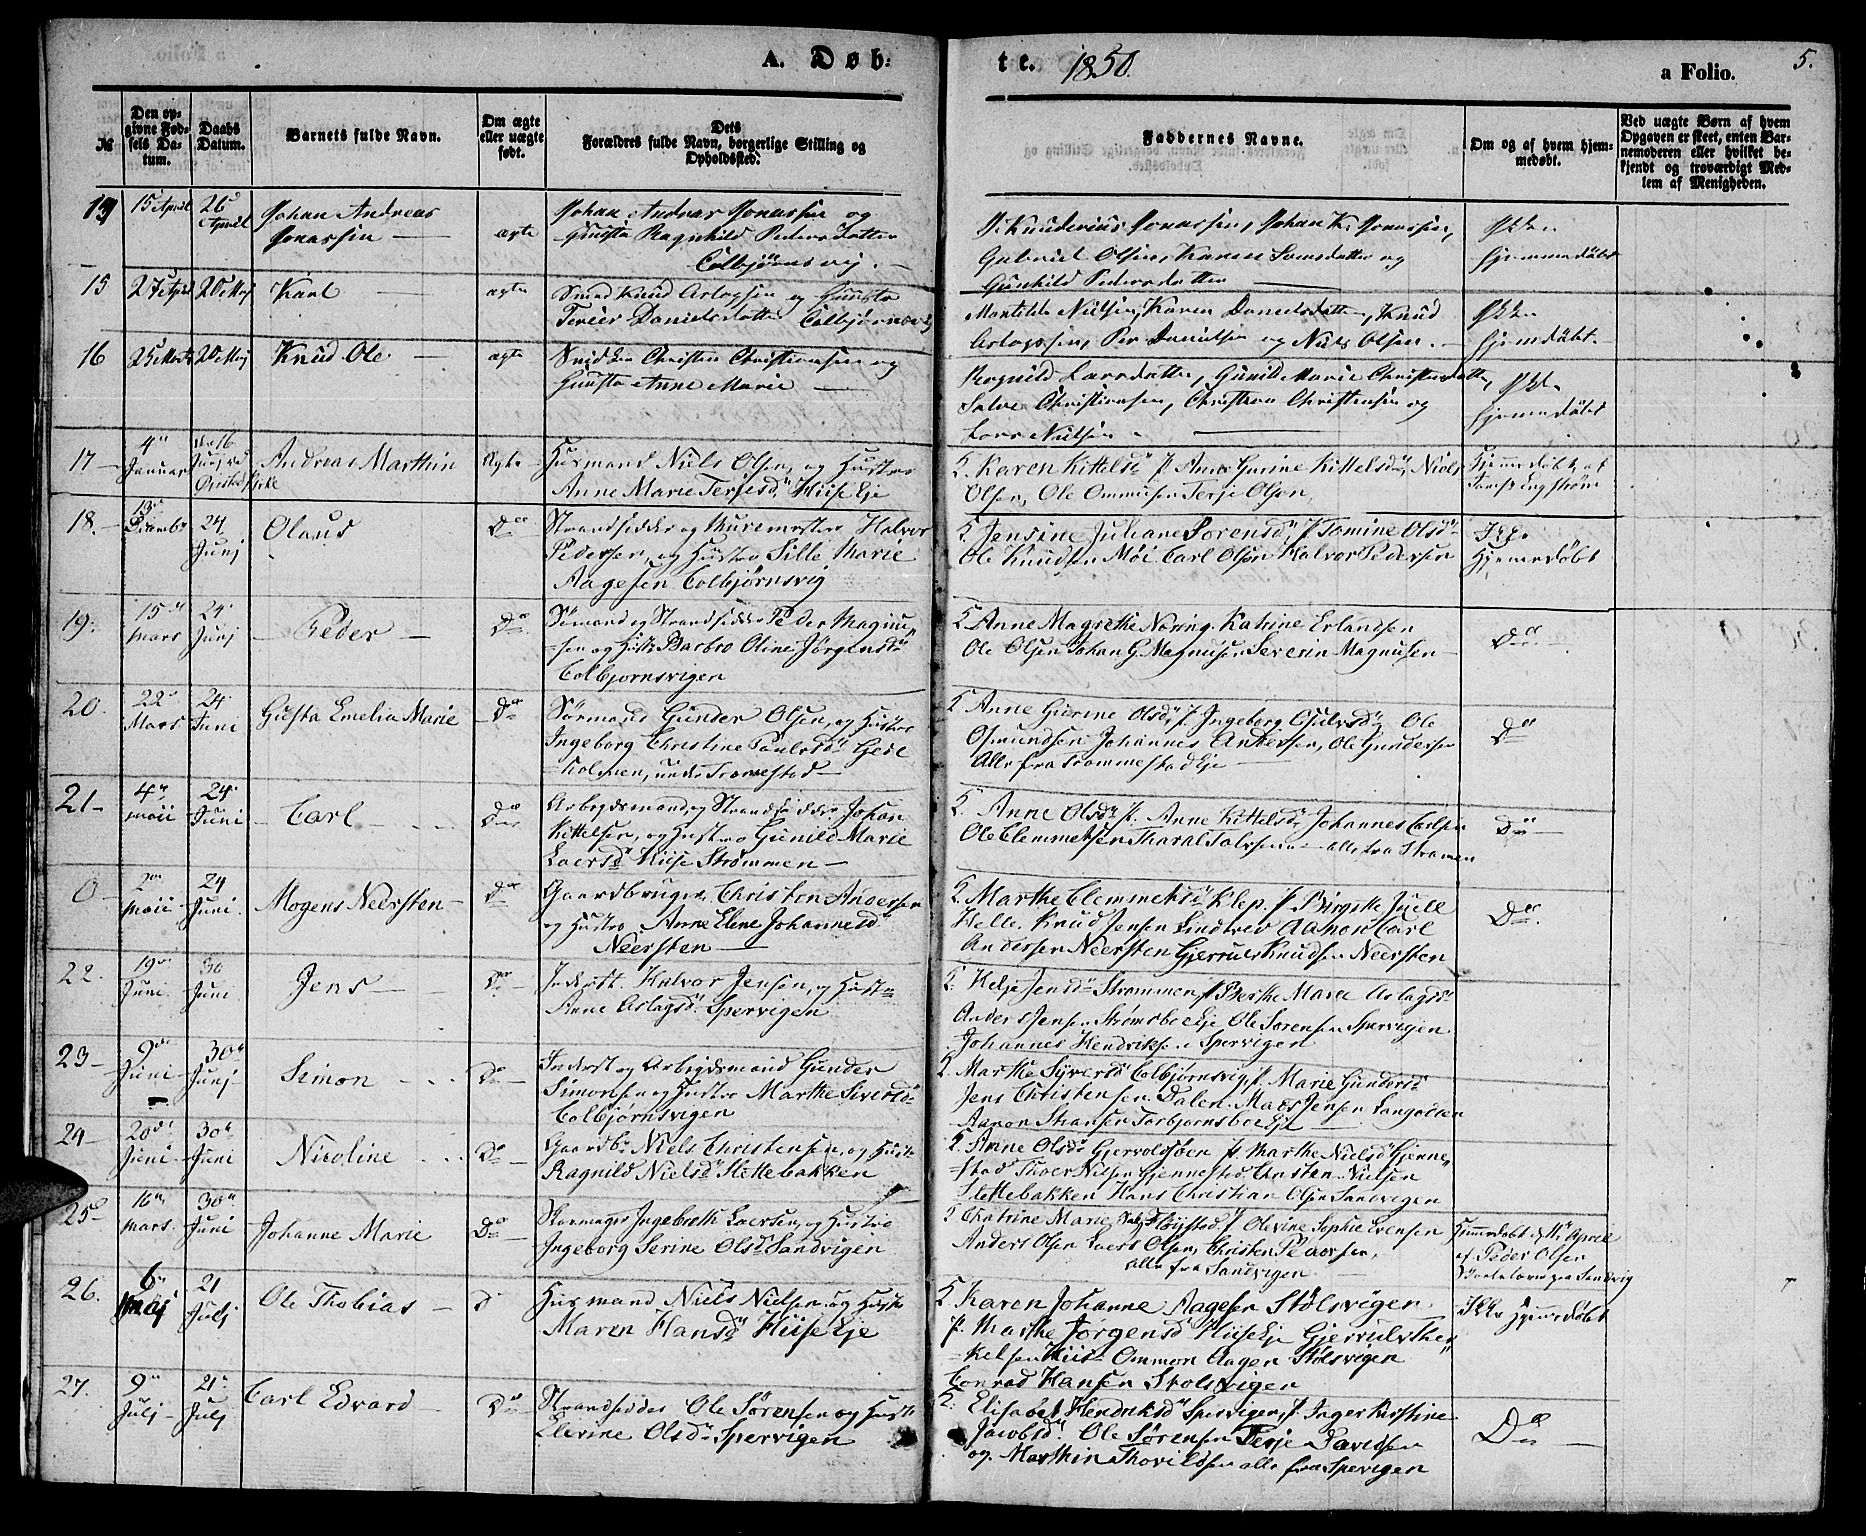 A. Døb:
te. 1850.
a Folio.
5.
№
Den op-
givne Fød-
sels Da-
tum.
Daabs
Datum.
Barnets fulde Navn.
Om ægte
eller uægte
født.
Dets
Forældres fulde Navn, borgerlige Stilling og
Opholdssted.
Faddernes Navne.
Om og af hvem hjem-
medøbt.
Ved uægte Børn af hvem
Opgaven er skeet, enten Bar-
nemoderen eller hvilket be-
kjendt og troværdigt Med-
lem af Menigheden.
15 April
26
April
Johan Andreas
Jonassen
ægte
Johan Andreas Jonassen og
Hustro Ragnhild Pedersdatter
Colbjørnsvig.
Knuderius Jonassen, Johan K. Jonassen,
Gabriel Olsen, Karen Larsdatter og
Gunhild Pedersdatter
Ikke
hjemmedøbt
15
27 April
20 Maj
Karl
ægte
Smed Knud Aslagsen og Hustro
Terjer Danielsdatter Colbjørnsvig
Mathilde Nielsen, Karen Danielsdatter, Knud
Aslagssen, Per Danielsen og Niels Olsen.
Ikke
hjemdøbt.
16
25 Marts
20 Maj
Knud Ole
ægte
Christen Christensen og
Hustro Anne Marie
Ragnild Larsdatter, Gunild Marie Christensdatter,
Salve Christiansen, Christian Christensen og
Lars Nielsen
Ikke
hjemmedøbt
17
4
Januar
16
Juni
Andreas Marthin
Ægte
Husmand Niels Olsen, og Hustro
Anne Marie Terjesd. Hiise Eje
5. Karen Kittelsd. J. Anne Gurine Kittelsd., Niels
Olsen, Ole Ommusen Terje Olsen
Hjemmedøbt af
Engstrøm
18.
13
Decembr
24
Junj
Olaus
Do
Strandsidder og Muremester Halvor
Pedersen, og Hustro Sille Marie
Aagesen Colbjørnsvig
5 Jensine Juliane Sorensd. J. Tomine Olsd.
Ole Knudsen Møi Carl Olsen Halvor Pedersen
Ikke
hjemmedøbt
19.
15
Mars
24
Junj
Peder
Do
Sømand og Strandsidder Peder Magnu-
sen og Hustr Barbro Oline Jørgensd.
Colbjornsvigen
5 Anne Magrethe Næring Katrine Erlandsen
Ole Olsen Johan G. Magnusen Severin Magnusen
Do
20.
22
Mars
24
Juni
Gusta Emelia Marie
Do
Sørmand Gunder Olsen, og Hustro
Ingeborg Christine Paulsd. Gjede-
holmen, under Tromestad
5 Anne Gurine Olsd. J. Ingeborg Osulvsd. Ole
Osmundsen Johannes Andersen, Ole Gundersen
Alle fra Trommestad Eje
Do
21
4
Maii
24
Juni
Carl
Do
Arbejdsmand og Strandsidder Johan
Kittelsen, og Hustro Gunild Marie
Laersd. Hiise Strømmen
5. Anne Olsd. J. Anne Kittelsd. Johannes Carlsen
Ole Clemmetsen Tharal Talvsen alle fra Strømen
Do
0
2
Maii
24
Juni
Mogens Neersten
Do
Gaardbruger Christen Andersen
og Hustro Anne Elene Johannesd.
Neersten
5. Marthe Clemmetsd. Klep. J. Birgithe Juell
Helle. Knud Jensen Lindtvedt Aanon Carl
Andersen Neersten Gjerrul Knudsen Neersten
Do
22.
19
Juni
30
Juni
Jens
Do
Inderst Halvor Jensen, og Hustro
Anne Aslagsd. Spervigen
5. Helje Jensd. Strømmen J. Berthe Marie Aslagsd.
Anders Jensen Strømsboe Eje Ole Sørensen Spervigen
Johannes Hendriksen Spervigen
23
9
Juni
30
Junj
Simon
Do
Inderst og Arbejdsmand Gunder
Simonsen og Hustro Marthe Siversd.
Colbjornsvigen
5. Marthe Syversd. Colbjørnsvig J. Marie Gundersd.
Jens Christensen Dalen. Mads Jensen Langodsen
Aanon Stiansen Torbjornsboe Eje
24
20
Juni
30
Juni
Nicoline
Do
Gaardbr. Niels Christensen, og Hustr
Ragnild Nielsd. Slettebakken
5. Anne Olsd. Gjervoldsøen J. Marthe Nielsd. Gjenne-
stad Thoer Nilsen Gjennestad Christen Nielsen
Slettebakken Hans Christian Olsen Sandvigen
25
16
Mars
30
Juni
Johanne Marie
Do
Skomager Ingebreth Laersen, og Hustro
Ingeborg Serine Olsd. Sandvigen
5 Chatrine Marie Fløystad J. Olevine Sophie Evensen
Anders Olsen Laers Olsen, Christen Pedersen,
alle fra Sandvigen
Hjemmedøbt d. April
af Peder Olsen
paa Sandvig
26.
6
Maj
21
Julj
Ole Thobias
D
Husmand Niels Nielsen, og Hustro
Maren Hansd. Hiise Eje
5 Karen Johanne Aagesen Stølsvigen
J. Marthe Jørgensd. Hiise Eje Gjerrul Ther-
kelsen Hiis Ommon Aagen Stølsvigen
Conrad Hansen Stolsvigen
Ikke hjemmedøbt
27.
9
Julj
21
Julj
Carl Edvard
Do
Strandsidder Ole Sørensen og Hustr
Elevine Olsd. Spervigen
5. Elisabet Hendriksd. Spervigen, J. Inger Kirstine
Jacobsd. Ole Sørensen Terje Davidsen
og Marthin Thorildsen alle fra Spervigen
Do